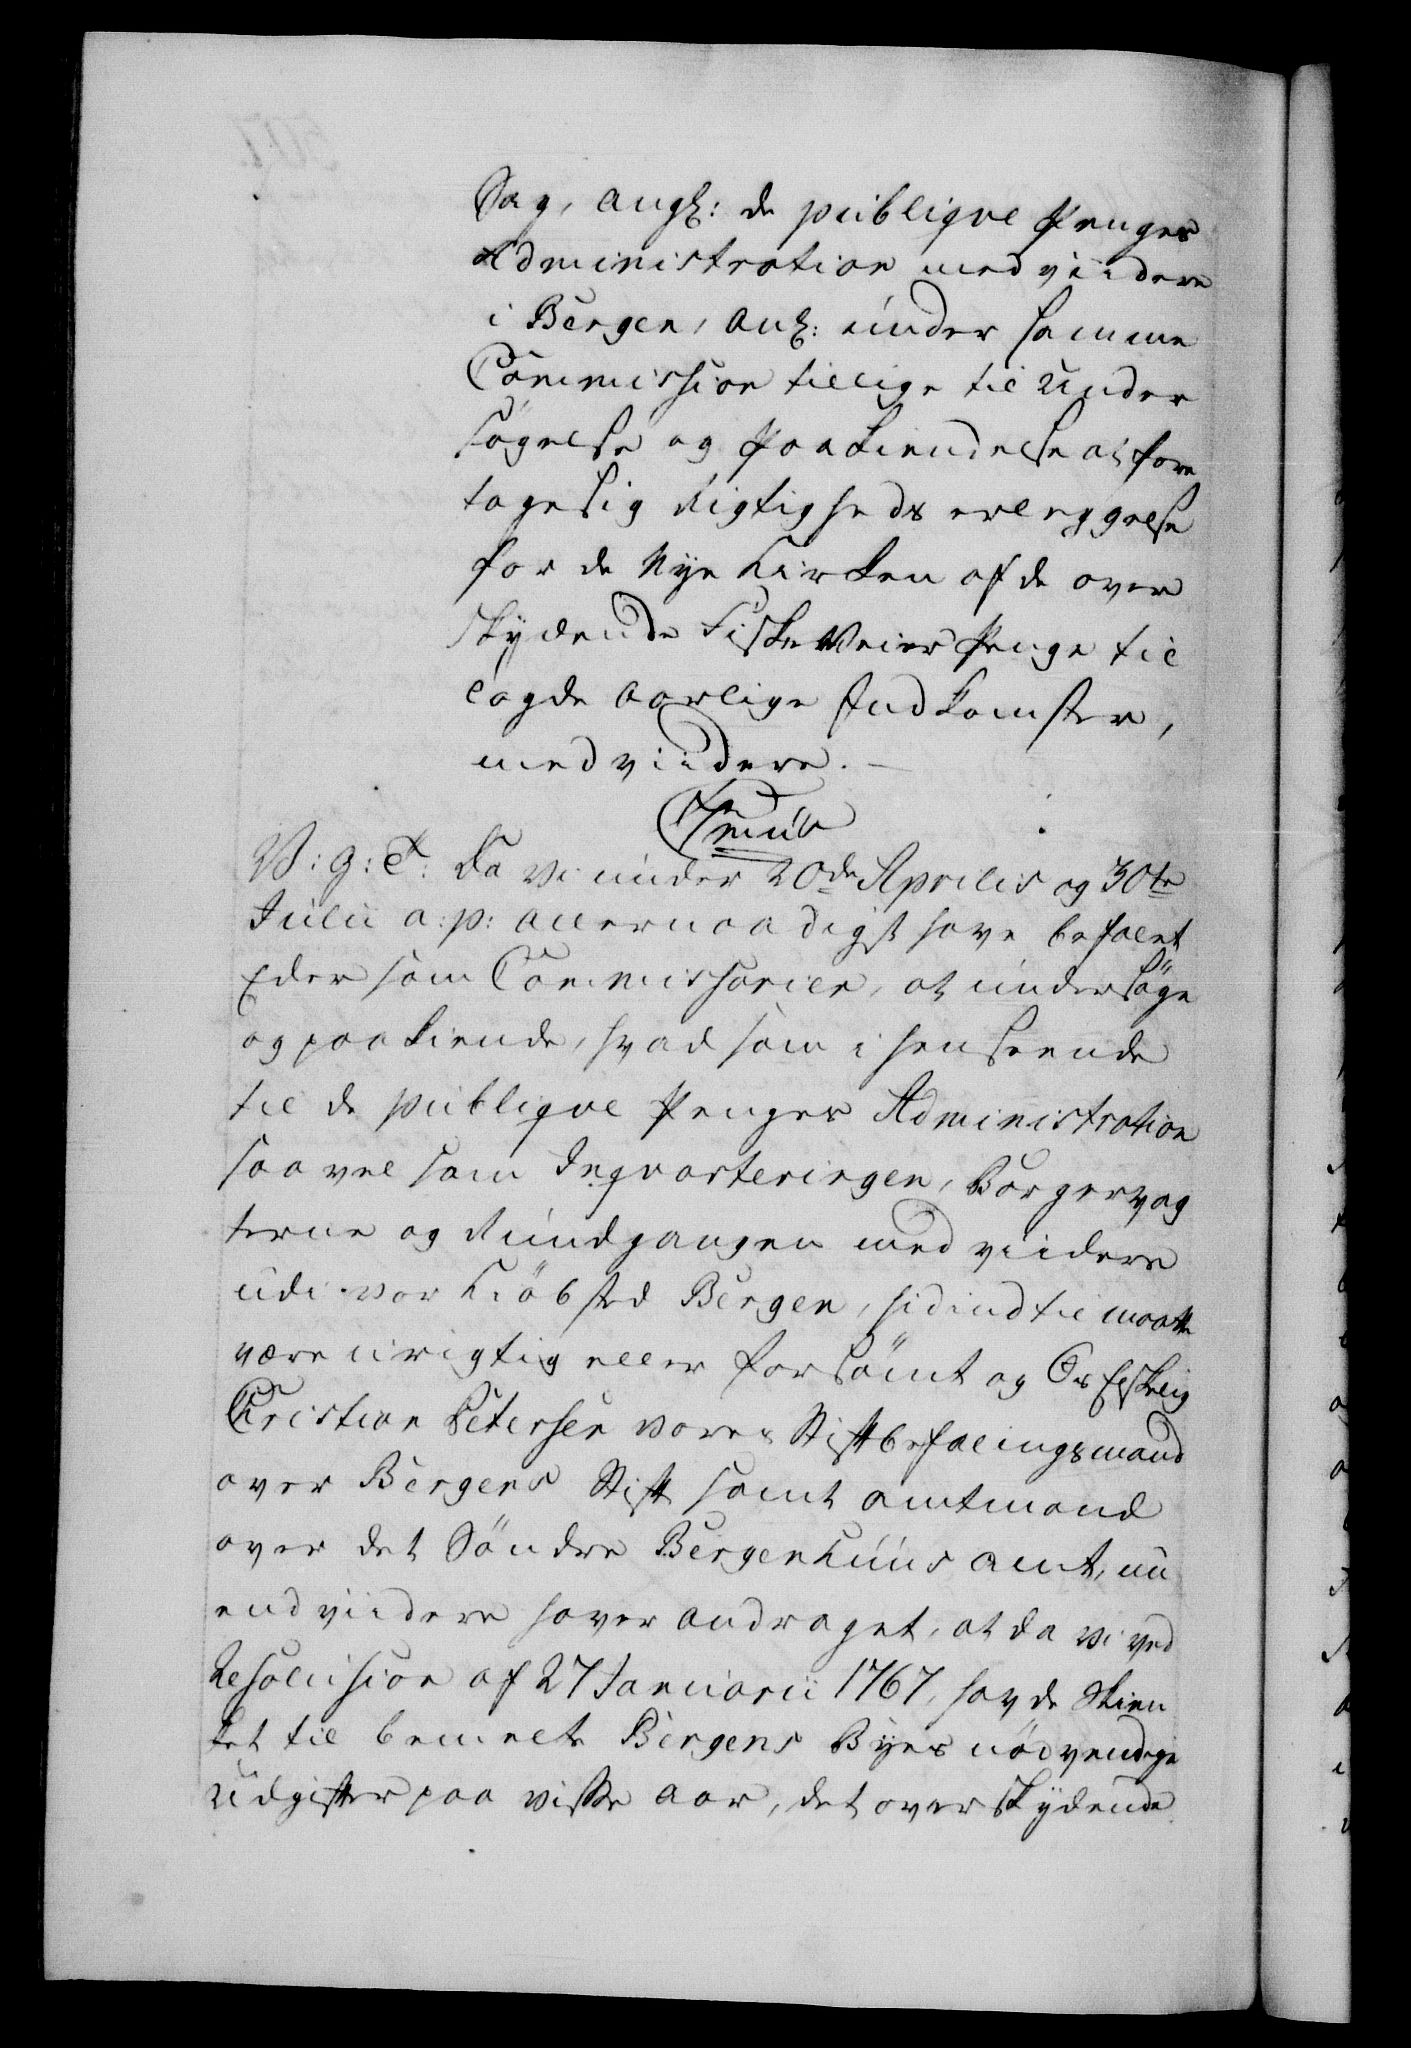 Sag, angl: de publiqve Penges
Administration med viidere
i Bergen, anl: under samme
Commission tillige til Under
søgelse og Paakiendelse at fore
tage sig Rigtigheds erleggelse
for de Nye Kirken af de over
skydende Fiske Veier Penge til
lagde aarlige Indkomster,
med viidere. —
V: g: T: Da vi under 20de Aprilis og 30te
Julii a: p: allernaadigst have befalet
Eder som Commissarier, at undersøge
og paakiende, hvad som i henseende
til de publiqve Penges Administration
saavel som Inqvarteringen, Borgervag
terne og Rundgangen med viidere
udi vor Kiöbsted Bergen, hidindtil maatte
være urigtig eller forsömt og Os Elskelig
Christian Petersen vores Stiftbefalingsmand
over Bergens Stift samt amtmand
over det Söndre Bergenhuus amt, nu
end viidere haver andraget, at da vi ved
Resolution af 27 Januarii 1767, havde Skien
ket til bemelte Bergens Byes nødvendige
Udgifter paa visse aar, det overskydende